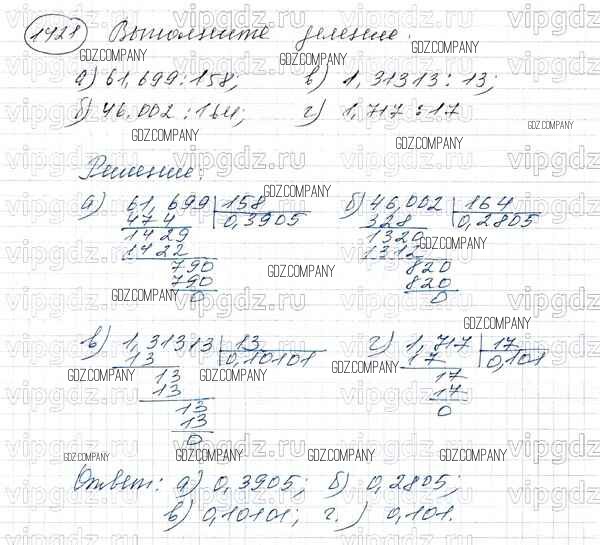 1428 Выполните деление:
а) 61,699:158; в) 1,31313:13;
б) 46,002:164; г) 1,717:17
Решение:
а) 61,699 158 б) 46,002 164
474 0,3905 328 0,2805
1429 1320
1422 1312
790 820
790 820
0 0
в) 1,31313 13 г) 1,717 17
13 0,10101 17 0,101
13 17
13 17
13 0
13
0
Ответ: а) 0,3905; б) 0,2805;
в) 0,10101; г.) 0,101.
vipgdz.ru
GDZ.COMPANY